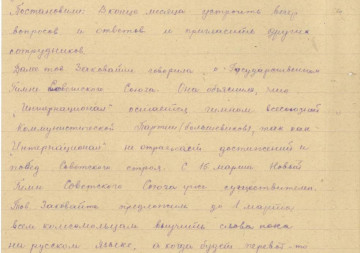 Постановили: В конце месяца устроить веч.
вопросов и ответов и пригласить других
сотрудников.
Далее тов Заховайло говорила о Государственном
Гимне Советского Союза. Она объяснила, что
"Интернационал" остается гимном всесоюзной
коммунистической Партии/большевиков, так как
"Интернационал" не отражает достижений и
побед Советского строя. С 15 марта Новой
Гимн Советского Союза уже существителен.
Тов Заховайло предложила до 1 марта
всем комсомольцам выучить слова пока
на русском языке, а когда будет перевот-то